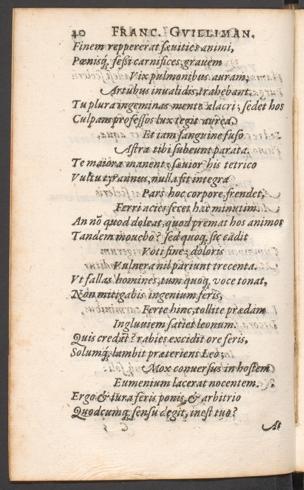 40 FRANC. GVILLIMAN.
Finem reppererat sæuities animi,
Pœnisq́, fessi carnifices grauem
Vix pulmonibus auram,
Artubus inualidis, trahebant.
Tu plura ingeminas mente alacri, sedet hos
Culpam professos lux tegit aurea.
Et iam sanguine fuso
Astra tibi subeunt parata.
Te maiora manent, sæuior his tetrico
Vultu tyrannus, nulla sit integra
Pars hoc corpore, frendet,
Ferri acies secet hæc minutim.
An nõ quod doleas, quod premat hos animos
Tandem mouebo? sed quoq́, sic cadit
Voti fine, doloris
Vulnera nil pariunt trecenta.
Vt fallas homines, tum quoq́, voce tonat,
Nõn mitigabis ingenium feris,
Ferte hinc, tollite prædam
Ingluuiem satiet leonum.
Quis credat? rabies excidit ore feris,
Solumq́, lambit præteriens Leo;
Mox conuersus in hostem
Eumenium lacerat nocentem.
Ergo & iura feris ponis, & arbitrio
Quodcumq́, sensu degit, inest tuo?
At